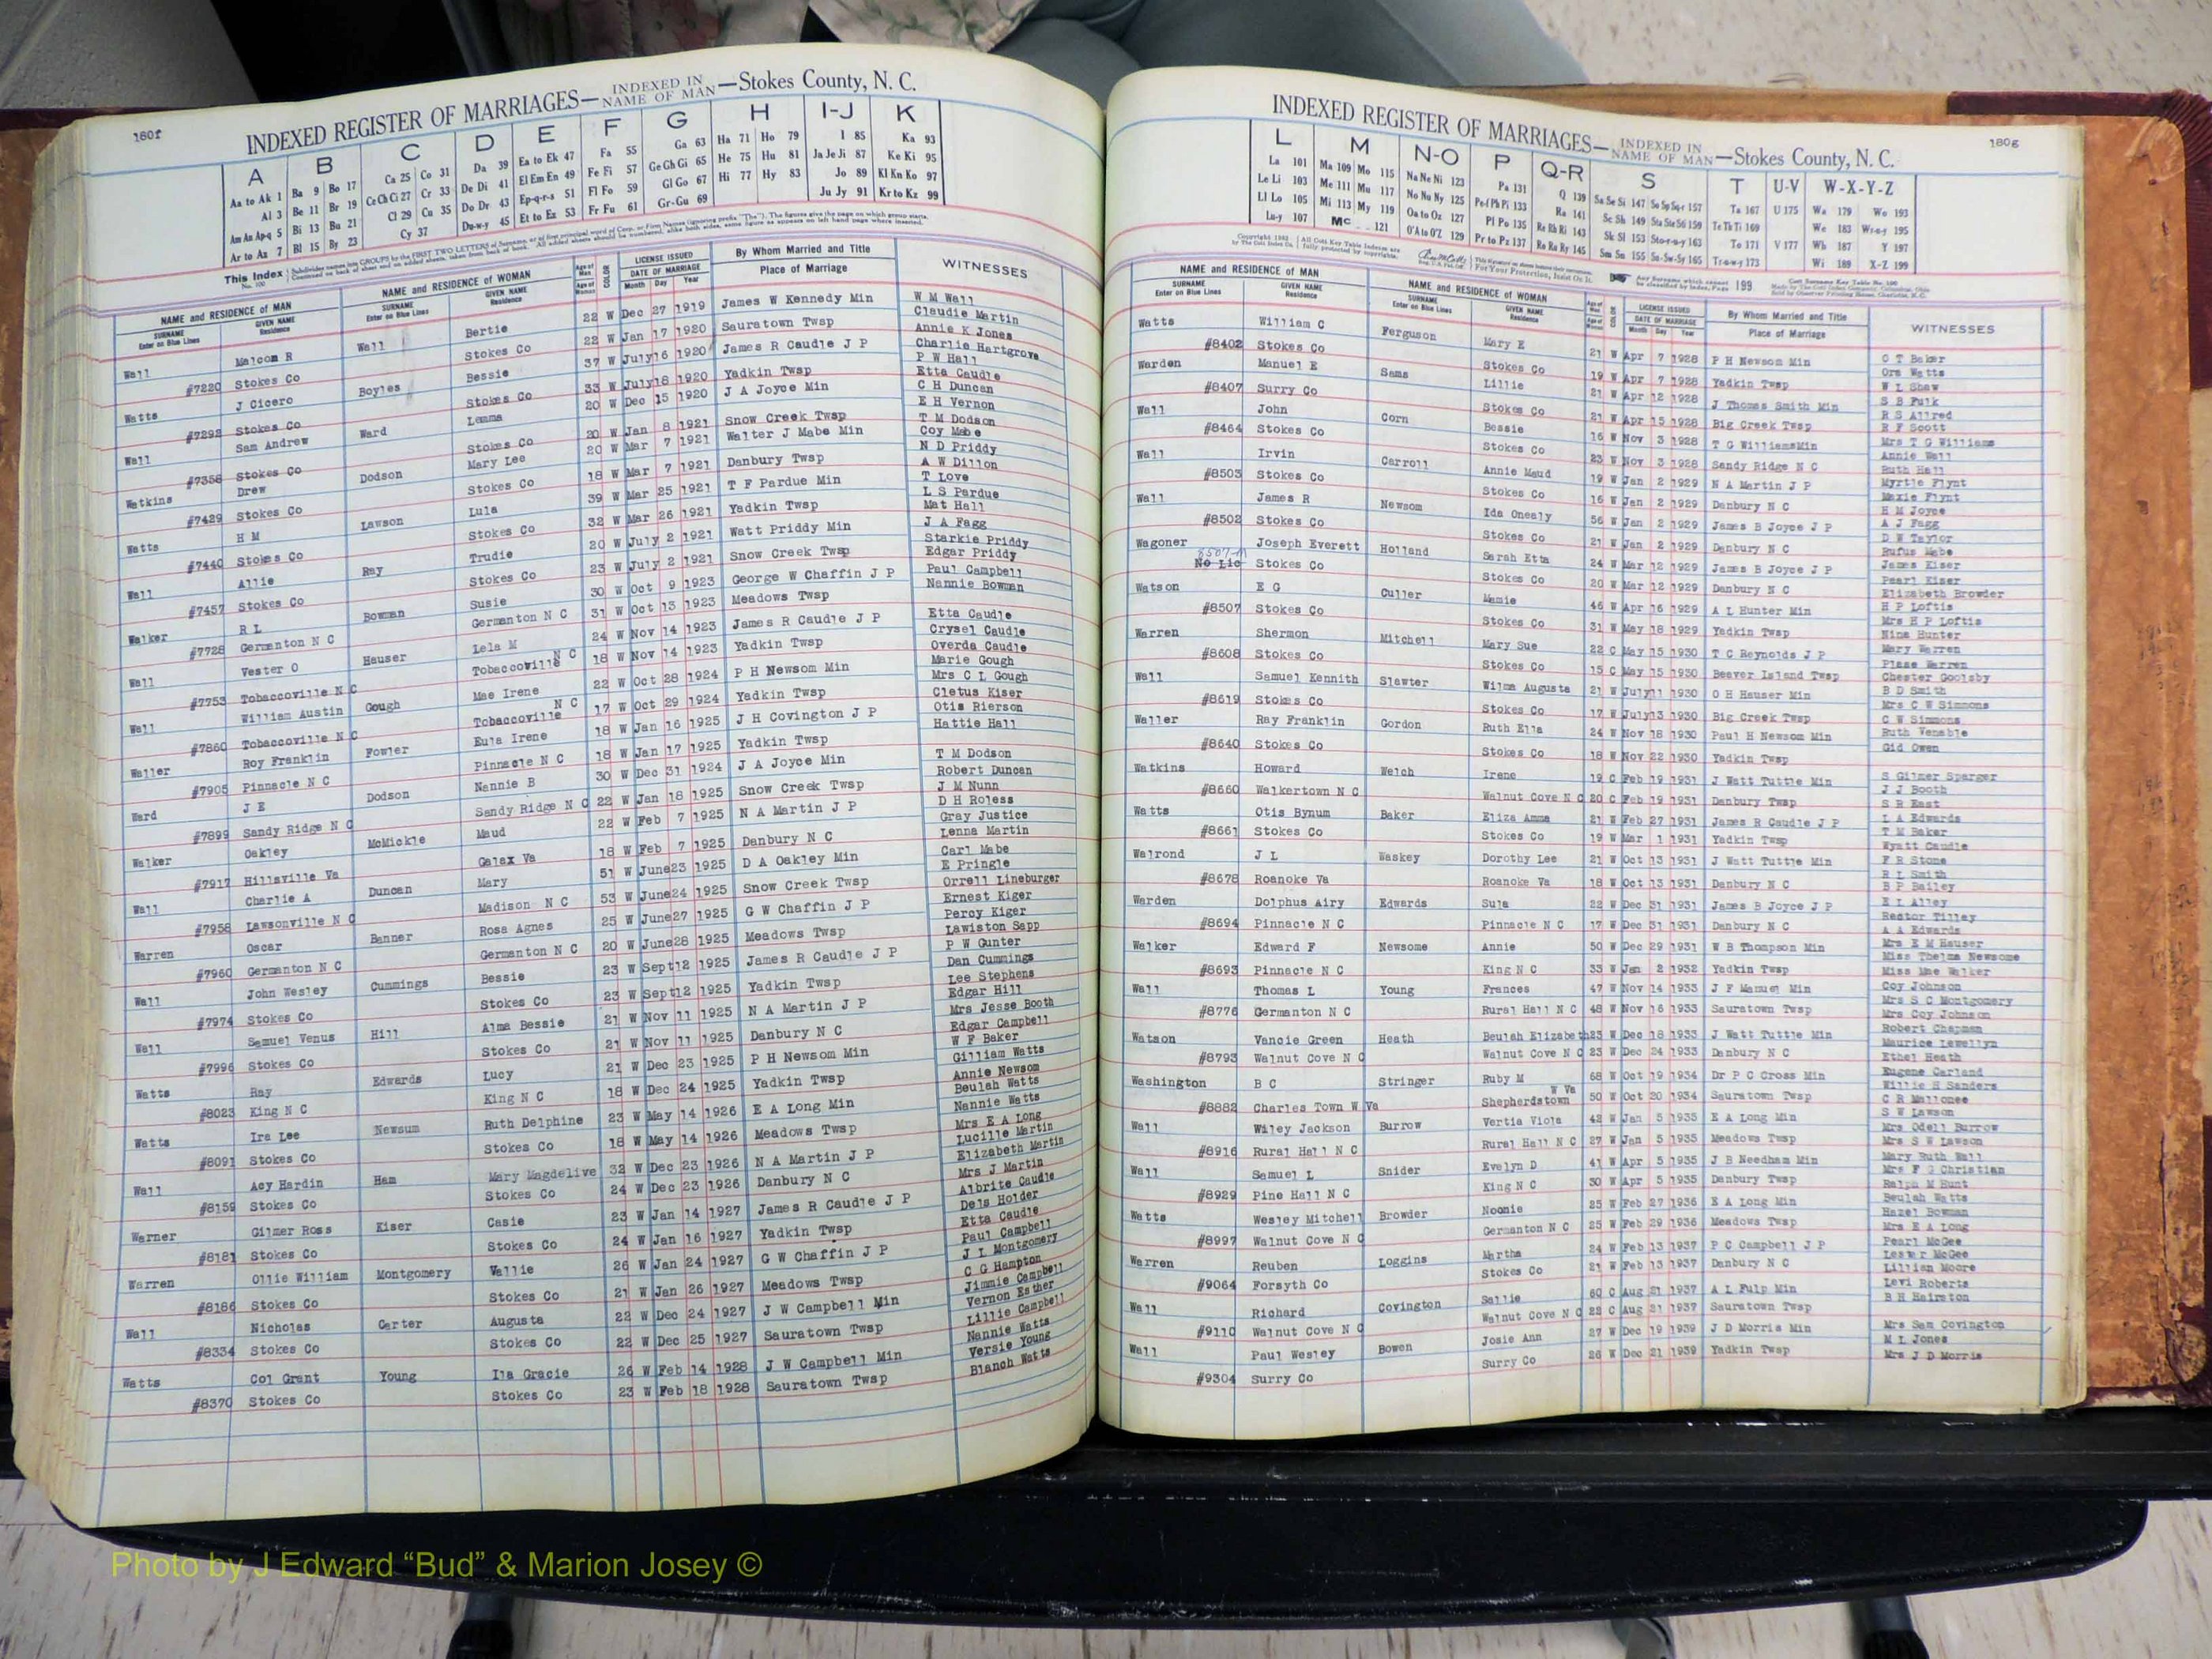 180f
INDEXED REGISTER OF MARRIAGES—INDEXED IN NAME OF MAN—Stokes County, N. C.
A B C D E F G H I-J K
Aa to Ak 1 Ba 9 Bo 17 Ca 25 Co 31 Da 39 Ea to Ek 47 Fa 55 Ga 63 Ha 71 Ho 79 I 85 Ka 93
Al 3 Be 11 Br 19 Ce Ch Ci 27 Cr 33 De Di 41 El Em En 49 Fe Fi 57 Ge Gh Gi 65 He 75 Hu 81 Ja Je Ji 87 Ke Ki 95
Am An Ap-q 5 Bi 13 Bu 21 Cl 29 Cu 35 Do Dr 43 Ep-q-r-s 51 Fl Fo 59 Gl Go 67 Hi 77 Hy 83 Jo 89 Kl Kn Ko 97
Ar to Az 7 Bl 15 By 23 Cy 37 Du-w-y 45 Et to Ez 53 Fr Fu 61 Gr-Gu 69 Ju Jy 91 Kr to Kz 99
NAME and RESIDENCE of MAN NAME and RESIDENCE of WOMAN LICENSE ISSUED By Whom Married and Title WITNESSES
SURNAME GIVEN NAME SURNAME GIVEN NAME DATE OF MARRIAGE Place of Marriage
Enter on Blue Lines Residence Enter on Blue Lines Residence Month Day Year
Wall Malcom R Wall Bertie 22 W Dec 27 1919 James W Kennedy Min W M Wall
#7220 Stokes Co Stokes Co 22 W Jan 17 1920 Sauratown Twsp Claudie Martin
Annie K Jones
Watts J Cicero Boyles Bessie 37 W July 16 1920 James R Caudle J P Charlie Hartgrove
P W Hall
#7292 Stokes Co Stokes Co 33 W July 18 1920 Yadkin Twsp Etta Caudle
Wall Sam Andrew Ward Lemma 20 W Dec 15 1920 J A Joyce Min C H Duncan
E H Vernon
#7358 Stokes Co Stokes Co 20 W Jan 8 1921 Snow Creek Twsp T M Dodson
Watkins Drew Dodson Mary Lee 20 W Mar 7 1921 Walter J Mabe Min Coy Mabe
N D Priddy
#7429 Stokes Co Stokes Co 18 W Mar 7 1921 Danbury Twsp A W Dillon
Watts H M Lawson Lula 39 W Mar 25 1921 T F Pardue Min T Love
L S Pardue
#7440 Stokes Co Stokes Co 32 W Mar 26 1921 Yadkin Twsp Mat Hall
Wall Allie Ray Trudie 20 W July 2 1921 Watt Priddy Min J A Fagg
Starkie Priddy
#7457 Stokes Co Stokes Co 23 W July 2 1921 Snow Creek Twsp Edgar Priddy
Walker R L Bowman Susie 30 W Oct 9 1923 George W Chaffin J P Paul Campbell
#7728 Germanton N C Germanton N C 31 W Oct 13 1923 Meadows Twsp Nannie Bowman
Wall Vester O Hauser Lela M 24 W Nov 14 1923 James R Caudle J P Etta Caudle
Crysel Caudle
#7753 Tobaccoville N C Tobaccoville N C 18 W Nov 14 1923 Yadkin Twsp Overda Caudle
Wall William Austin Gough Mae Irene 22 W Oct 28 1924 P H Newsom Min Marie Gough
Mrs C L Gough
#7860 Tobaccoville N C Tobaccoville N C 17 W Oct 29 1924 Yadkin Twsp Cletus Kiser
Waller Roy Franklin Fowler Eula Irene 18 W Jan 16 1925 J H Covington J P Otis Rierson
#7905 Pinnacle N C Pinnacle N C 18 W Jan 17 1925 Yadkin Twsp Hattie Hall
Ward J E Dodson Nannie B 30 W Dec 31 1924 J A Joyce Min T M Dodson
Robert Duncan
#7899 Sandy Ridge N C Sandy Ridge N C 22 W Jan 18 1925 Snow Creek Twsp J M Nunn
Walker Oakley McMickle Maud 22 W Feb 7 1925 N A Martin J P D H Roless
Gray Justice
#7917 Hillsville Va Galax Va 18 W Feb 7 1925 Danbury N C Lenna Martin
Wall Charlie A Duncan Mary 51 W June 23 1925 D A Oakley Min Carl Mabe
E Pringle
#7958 Lawsonville N C Madison N C 53 W June 24 1925 Snow Creek Twsp Orrell Lineburger
Warren Oscar Banner Rosa Agnes 25 W June 27 1925 G W Chaffin J P Ernest Kiger
Percy Kiger
#7960 Germanton N C Germanton N C 20 W June 28 1925 Meadows Twsp Lawiston Sapp
Wall John Wesley Cummings Bessie 23 W Sept 12 1925 James R Caudle J P P W Gunter
Dan Cummings
#7974 Stokes Co Stokes Co 23 W Sept 12 1925 Yadkin Twsp Lee Stephens
Wall Samuel Venus Hill Alma Bessie 21 W Nov 11 1925 N A Martin J P Edgar Hill
Mrs Jesse Booth
#7996 Stokes Co Stokes Co 21 W Nov 11 1925 Danbury N C Edgar Campbell
Watts Ray Edwards Lucy 21 W Dec 23 1925 P H Newsom Min W F Baker
Gilliam Watts
#8023 King N C King N C 18 W Dec 24 1925 Yadkin Twsp Annie Newsom
Watts Ira Lee Newsum Ruth Delphine 23 W May 14 1926 E A Long Min Beulah Watts
Nannie Watts
#8091 Stokes Co Stokes Co 18 W May 14 1926 Meadows Twsp Mrs E A Long
Wall Acy Hardin Ham Mary Magdelive 32 W Dec 23 1926 N A Martin J P Lucille Martin
Elizabeth Martin
#8159 Stokes Co Stokes Co 24 W Dec 23 1926 Danbury N C Mrs J Martin
Warner Gilmer Ross Kiser Casie 23 W Jan 14 1927 James R Caudle J P Albrite Caudle
Dels Holder
#8181 Stokes Co Stokes Co 24 W Jan 16 1927 Yadkin Twsp Etta Caudle
Warren Ollie William Montgomery Vallie 26 W Jan 24 1927 G W Chaffin J P Paul Campbell
J L Montgomery
#8186 Stokes Co Stokes Co 21 W Jan 26 1927 Meadows Twsp C G Hampton
Wall Nicholas Carter Augusta 22 W Dec 24 1927 J W Campbell Min Jimmie Campbell
Vernon Esther
#8334 Stokes Co Stokes Co 22 W Dec 25 1927 Sauratown Twsp Lillie Campbell
Watts Col Grant Young Ila Gracie 26 W Feb 14 1928 J W Campbell Min Nannie Watts
Versie Young
#8370 Stokes Co Stokes Co 23 W Feb 18 1928 Sauratown Twsp Blanch Watts
180g
INDEXED REGISTER OF MARRIAGES—INDEXED IN NAME OF MAN—Stokes County, N. C.
L M N-O P Q-R S T U-V W-X-Y-Z
La 101 Ma 109 Mo 115 Na Ne Ni 123 Pa 131 Q 139 Sa Se Si 147 So Sp Sq-r 157 Ta 167 U 175 Wa 179 Wo 193
Le Li 103 Me 111 Mu 117 No Nu Ny 125 Pe-f Ph Pi 133 Ra 141 Sc Sh 149 Sta Ste Sti 159 Te Th Ti 169 We 183 Wr-o-y 195
Ll Lo 105 Mi 113 My 119 Oa to Oz 127 Pl Po 135 Re Rh Ri 143 Sk Sl 153 Sto-r-u-y 163 To 171 V 177 Wh 187 Y 197
Lu-y 107 Mc 121 O'A to O'Z 129 Pr to Pz 137 Ro Ru Ry 145 Sm Sn 155 Su-Sw-Sy 165 Tr-u-w-y 173 Wi 189 X-Z 199
NAME and RESIDENCE of MAN NAME and RESIDENCE of WOMAN LICENSE ISSUED By Whom Married and Title WITNESSES
SURNAME GIVEN NAME SURNAME GIVEN NAME DATE OF MARRIAGE Place of Marriage
Enter on Blue Lines Residence Enter on Blue Lines Residence Month Day Year
Watts William C Ferguson Mary E 21 W Apr 7 1928 P H Newsom Min O T Baker
Ora Watts
#8402 Stokes Co Stokes Co 19 W Apr 7 1928 Yadkin Twsp W L Shaw
Warden Manuel E Sams Lillie 21 W Apr 12 1928 J Thomas Smith Min S B Fulk
R S Allred
#8407 Surry Co Stokes Co 21 W Apr 15 1928 Big Creek Twsp R F Scott
Wall John Corn Bessie 16 W Nov 3 1928 T G Williams Min Mrs T G Williams
Annie Wall
#8464 Stokes Co Stokes Co 23 W Nov 3 1928 Sandy Ridge N C Ruth Hall
Wall Irvin Carroll Annie Maud 19 W Jan 2 1929 N A Martin J P Myrtle Flynt
Maxie Flynt
#8503 Stokes Co Stokes Co 16 W Jan 2 1929 Danbury N C H M Joyce
Wall James R Newsom Ida Onealy 56 W Jan 2 1929 James B Joyce J P A J Fagg
D W Taylor
#8502 Stokes Co Stokes Co 21 W Jan 2 1929 Danbury N C Rufus Mabe
Wagoner Joseph Everett Holland Sarah Etta 24 W Mar 12 1929 James B Joyce J P James Kiser
Pearl Kiser
No Lic Stokes Co Stokes Co 20 W Mar 12 1929 Danbury N C Elizabeth Browder
Watson E G Culler Mamie 46 W Apr 16 1929 A L Hunter Min H P Loftis
Mrs H P Loftis
#8507 Stokes Co Stokes Co 31 W May 18 1929 Yadkin Twsp Nina Hunter
Warren Shermon Mitchell Mary Sue 22 C May 15 1930 T C Reynolds J P Mary Warren
#8608 Stokes Co Stokes Co 15 C May 15 1930 Beaver Island Twsp Chester Goolsby
Wall Samuel Kennith Slawter Wilma Augusta 21 W July 11 1930 O H Hauser Min B D Smith
Mrs C W Simmons
#8619 Stokes Co Stokes Co 17 W July 13 1930 Big Creek Twsp C W Simmons
Waller Ray Franklin Gordon Ruth Ella 24 W Nov 18 1930 Paul H Newsom Min Ruth Venable
Gid Owen
#8640 Stokes Co Stokes Co 18 W Nov 22 1930 Yadkin Twsp
Watkins Howard Welch Irene 19 C Feb 19 1931 J Watt Tuttle Min S Gilmer Sparger
J J Booth
#8660 Walkertown N C Walnut Cove N C 20 C Feb 19 1931 Danbury Twsp S R East
Watts Otis Bynum Baker Eliza Amma 21 W Feb 27 1931 James R Caudle J P L A Edwards
T M Baker
#8661 Stokes Co Stokes Co 19 W Mar 1 1931 Yadkin Twsp Wyatt Caudle
Walrond J L Waskey Dorothy Lee 21 W Oct 13 1931 J Watt Tuttle Min F R Stone
R L Smith
#8678 Roanoke Va Roanoke Va 18 W Oct 13 1931 Danbury N C B P Bailey
Warden Dolphus Airy Edwards Sula 22 W Dec 31 1931 James B Joyce J P E L Alley
Rector Tilley
#8694 Pinnacle N C Pinnacle N C 17 W Dec 31 1931 Danbury N C A A Edwards
Walker Edward F Newsome Annie 50 W Dec 29 1931 W B Thompson Min Mrs E M Hauser
Miss Thelma Newsome
#8693 Pinnacle N C King N C 33 W Jan 2 1932 Yadkin Twsp Miss Mae Walker
Wall Thomas L Young Frances 47 W Nov 14 1933 J F Manuel Min Coy Johnson
Mrs S C Montgomery
#8776 Germanton N C Rural Hall N C 48 W Nov 16 1933 Sauratown Twsp Mrs Coy Johnson
Watson Vancie Green Heath Beulah Elizabeth 23 W Dec 18 1933 J Watt Tuttle Min Robert Chapman
Maurice Lewellyn
#8793 Walnut Cove N C Walnut Cove N C 23 W Dec 24 1933 Danbury N C Ethel Heath
Washington B C Stringer Ruby M 68 W Oct 19 1934 Dr P C Cross Min Eugene Carland
Willie H Sanders
#8882 Charles Town W Va Shepherdstown W Va 50 W Oct 20 1934 Sauratown Twsp C R Mallonee
Wall Wiley Jackson Burrow Vertia Viola 42 W Jan 5 1935 E A Long Min S W Lawson
Mrs Odell Burrow
#8916 Rural Hall N C Rural Hall N C 27 W Jan 5 1935 Meadows Twsp Mrs S W Lawson
Wall Samuel L Snider Evelyn D 41 W Apr 5 1935 J B Needham Min Mary Ruth Wall
Mrs F G Christian
#8929 Pine Hall N C King N C 30 W Apr 5 1935 Danbury Twsp Ralph M Hunt
Watts Wesley Mitchell Browder Noonie 25 W Feb 27 1936 E A Long Min Beulah Watts
Hazel Bowman
#8997 Walnut Cove N C Germanton N C 25 W Feb 29 1936 Meadows Twsp Mrs E A Long
Warren Reuben Loggins Martha 24 W Feb 13 1937 P C Campbell J P Pearl McGee
Lester McGee
#9064 Forsyth Co Stokes Co 21 W Feb 13 1937 Danbury N C Lillian Moore
Wall Richard Covington Sallie 60 C Aug 21 1937 A L Fulp Min Levi Roberts
B H Hairston
#9110 Walnut Cove N C Walnut Cove N C 22 C Aug 21 1937 Sauratown Twsp Mrs Sam Covington
Wall Paul Wesley Bowen Josie Ann 27 W Dec 19 1939 J D Morris Min M L Jones
#9304 Surry Co Surry Co 26 W Dec 21 1939 Yadkin Twsp Mrs J D Morris
Photo by J Edward “Bud” & Marion Josey ©